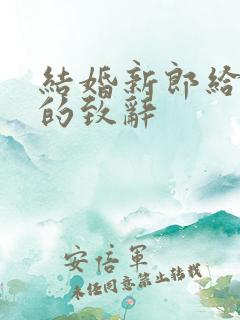 結婚新郎給
的致辭
安倍軍
未经同意禁止转载